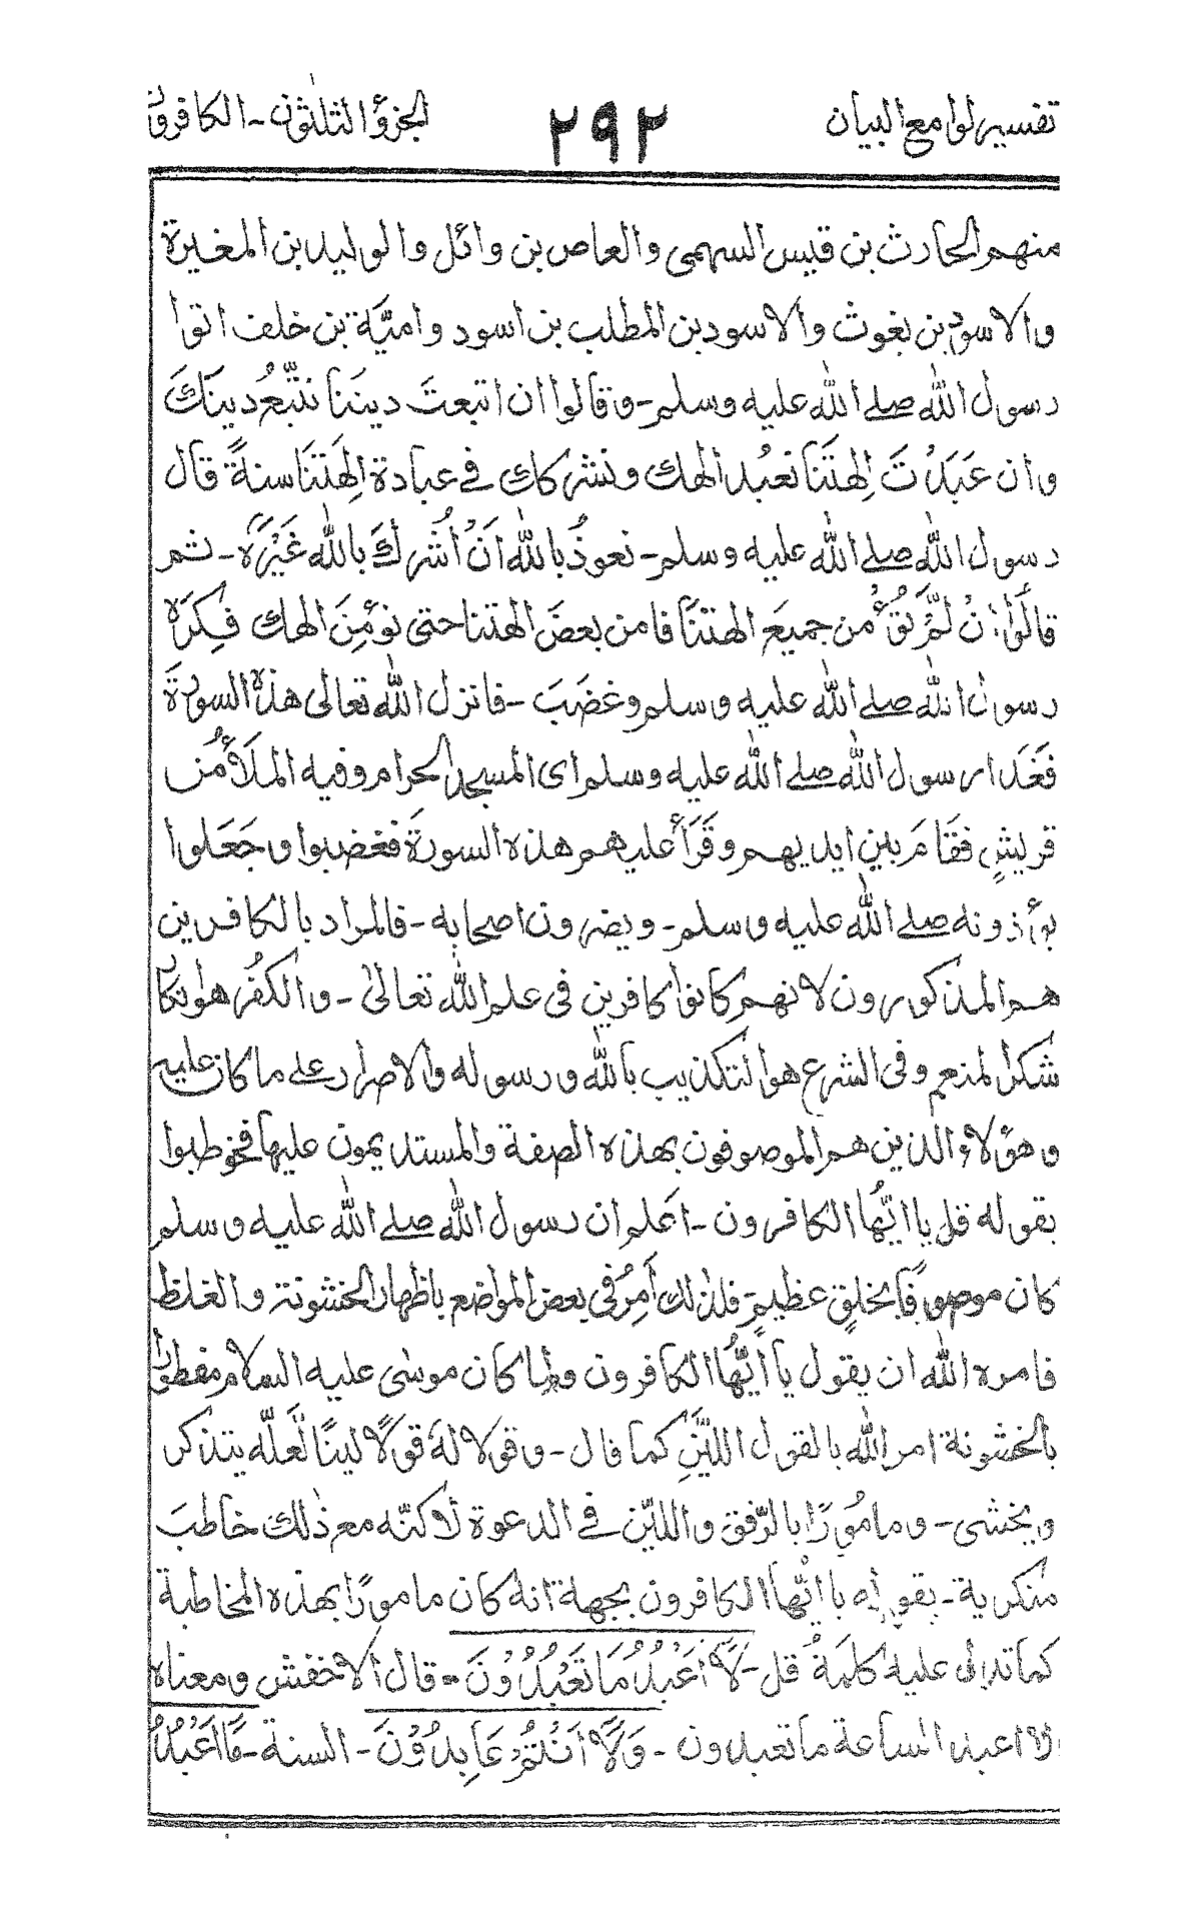 تفسير لوامع البيان ٢٩٢ الجزؤ الثلثون - الكافرون
منهم الحارث بن قيس السهمى والعاص بن وائل والوليد بن المغيرة
والاسود بن يغوث والاسود بن المطلب بن اسود واميَّة بن خلف اتوا
رسول الله صلے الله عليه وسلم - وقالوا ان اتبعتَ ديننَا نتَّبعُ دينَكَ
وان عَبَدتَ اٰلِهتَنَا نعبُد الٰهك ونشركك فے عبادة اٰلِهَتنَا سنةً قال
رسول الله صلے الله عليه وسلم - نعوذُ بالله اَنْ اُشركَ بالله غَيْرَه - ثم
قالَوا اِنْ لَمْ نُؤْمن جميعَ الهتنَا فامن بعضَ الهتنا حتى نؤمِنَ الهك فكِرَه
رسول الله صلے الله عليه وسلم وغضَبَ - فانزل الله تعالى هذه السورةَ
فَغَدَا رسول الله صلے الله عليه وسلم اى المسجد الحرام وفيه الملَأُ من
قريشٍ فقَامَ بين ايديهم وقَرَأَ عليهم هذه السورةَ فغضبوا وجَعَلوا
يؤذونه صلے الله عليه وسلم - ويضرون اصحابه - فالمراد بالكافرين
هم المذكورون لانهم كانوا كافرين فى علم الله تعالىٰ - والكفُر هو
شكر المنعم وفى الشرع هو التكذيب بالله ورسوله والاصرار علے ما كان عليه
وهؤلاء الذين هم الموصوفون بهذه الصفة والمستديمون عليها فخوطبوا
بقوله قل يا ايُّها الكافرون - اعلم ان رسول الله صلے الله عليه وسلم
كان موصوفًا بخلقٍ عظيمٍ - فلذلك اَمِرُ فى بعض المواضع باظهار الخشونة والغلظ
فامره الله ان يقول يا اَيُّها الكافرون ولما كان موسٰى عليه السلام مفطورا
بالخشونة امر الله بالقول الليّنِ كما قال - وقولا لهٗ قولًا لينًا لَّعلّه يتذكر
ويخشى - ومامُورًا بالرّفق والليّن فے الدعوة لاكنّه مع ذٰلك خاطبَ
منكرية - بقوله يا ايُّها الكافرون بجهة انه كان مامورًا بهذه المخاطبة
كما تدل عليه كلمَةُ قل - لَآ اَعْبُدُ مَا تَعْبُدُوْنَ - قال الاخفش ومعناه
لا اعبد الساعة ما تعبدون - وَلَآ اَنْتُمْ عَابِدُوْنَ - السنة - مَآ اَعْبُدُ